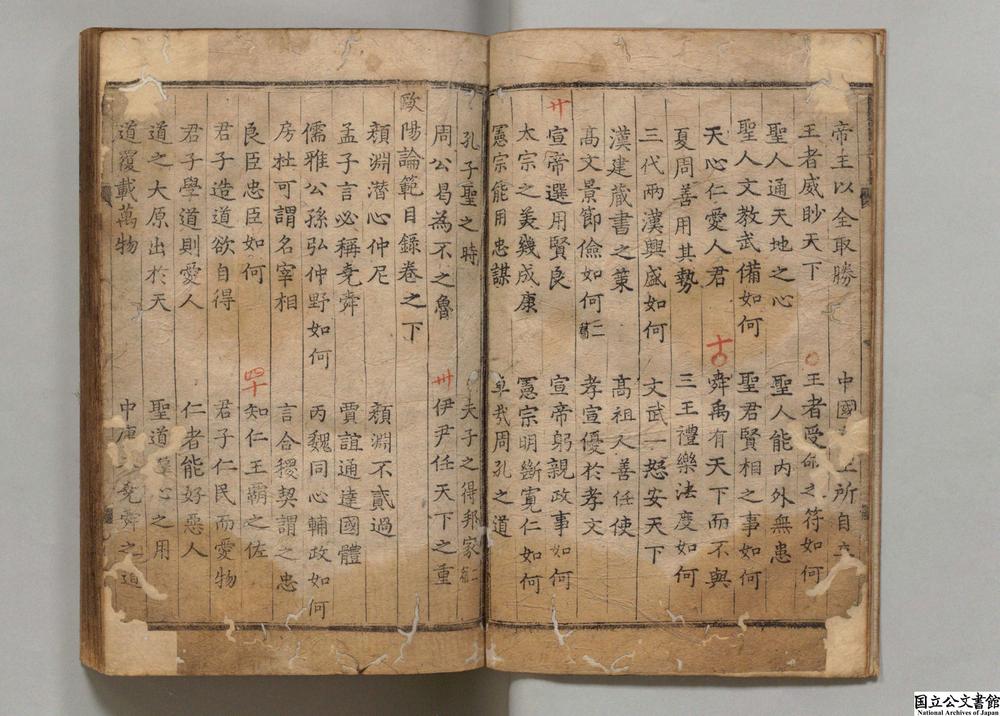 帝王以全取勝 中國 所自立
王者威眇天下 王者受命之符如何
聖人通天地之心 聖人能内外無患
聖人文教武備如何 聖君賢相之事如何
天心仁愛人君 十 舜禹有天下而不與
夏周善用其勢 三王禮樂法度如何
三代兩漢興盛如何 文武一怒安天下
漢建蔵書之策 高祖人善任使
高文景節儉如何 二首 孝宣優於孝文
廿 宣帝選用賢良 宣帝躬親政事如何
太宗之美幾成康 憲宗明斷寬仁如何
憲宗能用忠謀 卓哉周孔之道
孔子聖之時 夫子之得邦家 二首
周公曷為不之魯 卅 伊尹任天下之重
歐陽論範目錄卷之下
顔淵潛心仲尼 顔淵不貳過
孟子言必稱堯舜 賈誼通達國體
儒雅公孫弘仲野如何 丙魏同心輔政如何
房杜可謂名宰相 言合稷契謂之忠
良臣忠臣如何 四十 知仁王霸之佐
君子造道欲自得 君子仁民而愛物
君子學道則愛人 仁者能好惡人
道之大原出於天 聖道 心之用
道覆載萬物 中庸 堯舜之道
国立公文書館
National Archives of Japan